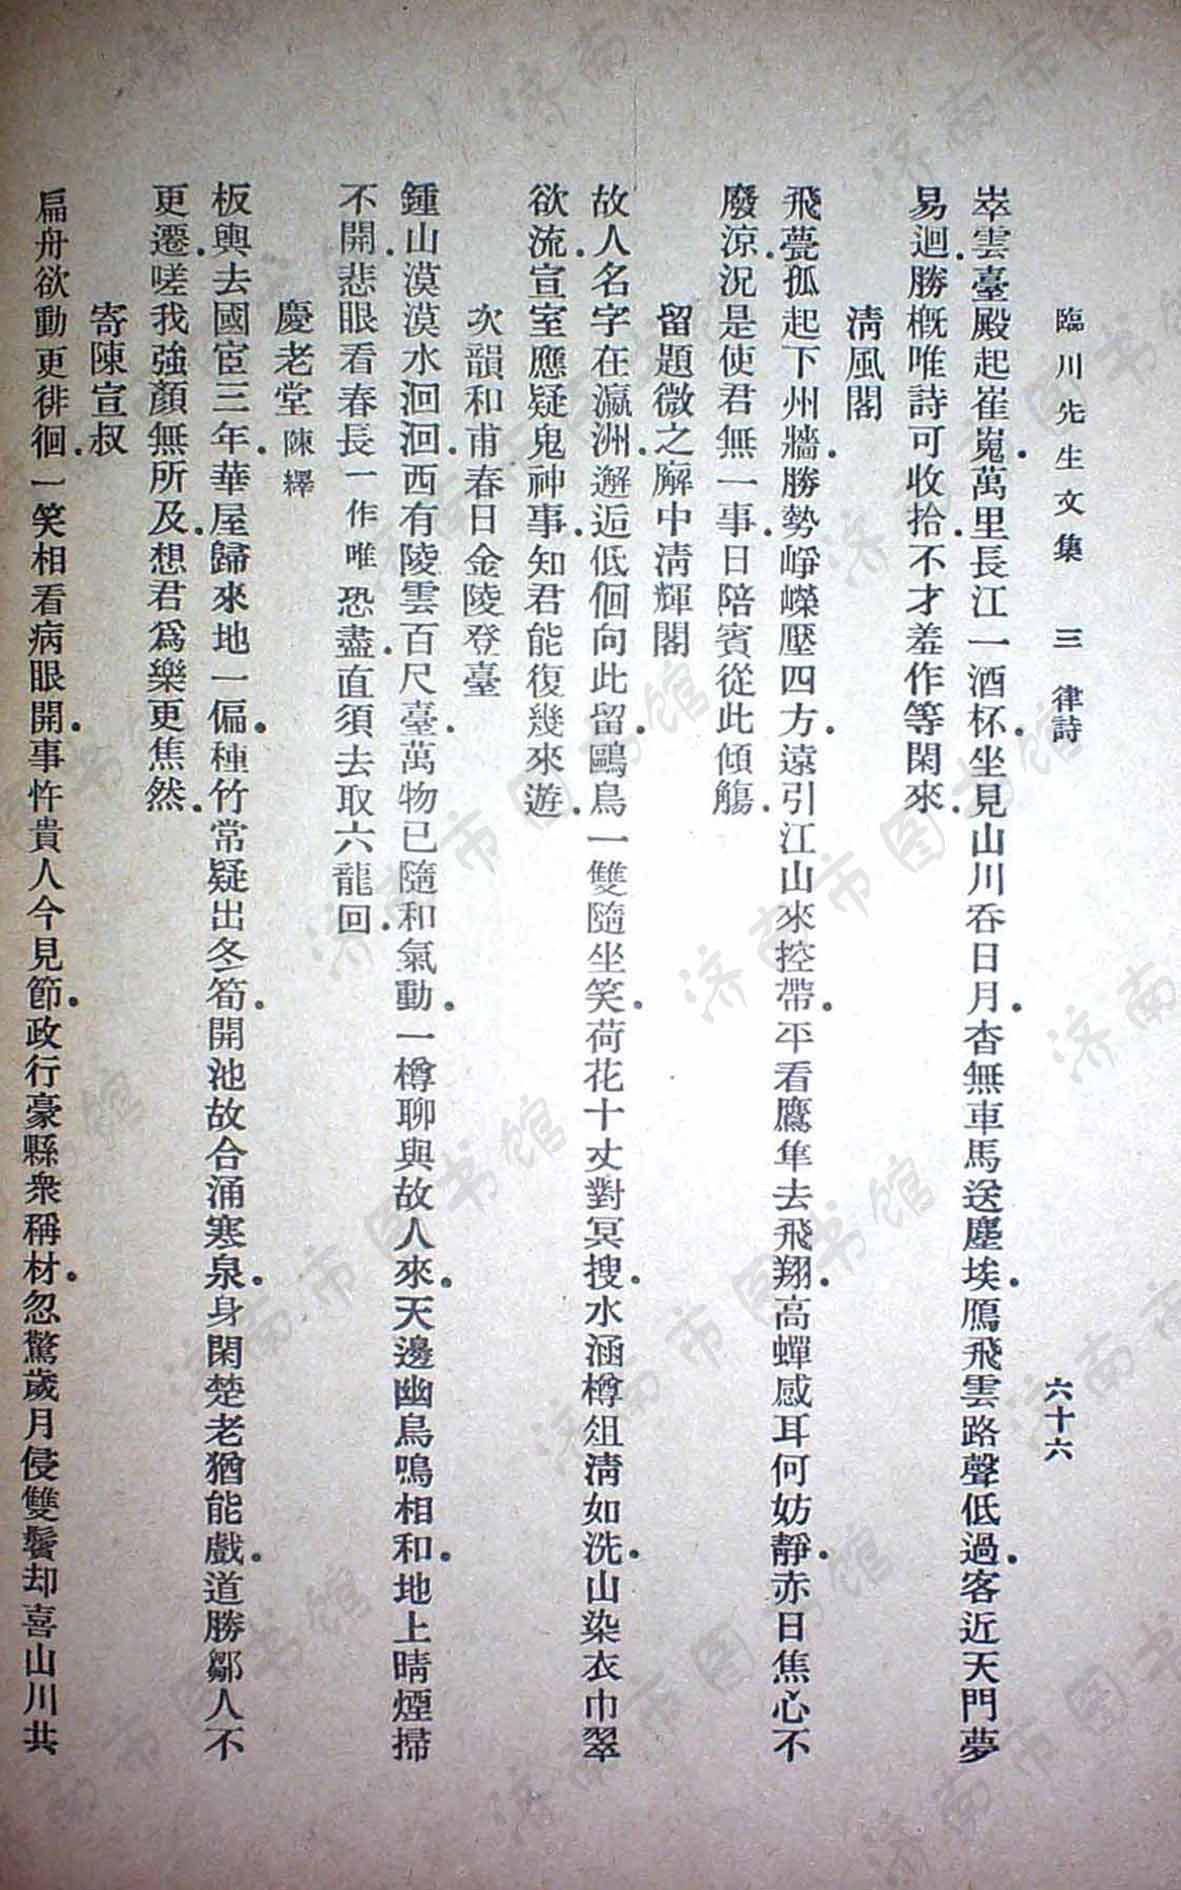 臨川先生文集　三　律詩　六十六
崒雲臺殿起崔嵬。萬里長江一酒杯。坐見山川吞日月。杳無車馬送塵埃。鴈飛雲路聲低過。客近天門夢
易迴。勝概唯詩可收拾。不才羞作等閑來。
清風閣
飛甍孤起下州牆。勝勢崢嶸壓四方。遠引江山來控帶。平看鷹隼去飛翔。高蟬感耳何妨靜。赤日焦心不
廢涼。況是使君無一事。日陪賓從此傾觴。
留題微之廨中清輝閣
故人名字在瀛洲。邂逅低佪向此留。鷗鳥一雙隨坐笑。荷花十丈對冥搜。水涵樽俎清如洗。山染衣巾翠
欲流。宣室應疑鬼神事。知君能復幾來遊。
次韻和甫春日金陵登臺
鍾山漠漠水洄洄。西有陵雲百尺臺。萬物已隨和氣動。一樽聊與故人來。天邊幽鳥鳴相和。地上晴煙掃
不開。悲眼看春長一作唯恐盡。直須去取六龍回。
慶老堂陳繹
板輿去國宦三年。華屋歸來地一偏。種竹常疑出冬筍。開池故合涌寒泉。身閑楚老猶能戲。道勝鄒人不
更遷。嗟我強顏無所及。想君爲樂更焦然。
寄陳宣叔
扁舟欲動更徘徊。一笑相看病眼開。事忤貴人今見節。政行豪縣衆稱材。忽驚歲月侵雙鬢却喜山川共
济南市图书馆